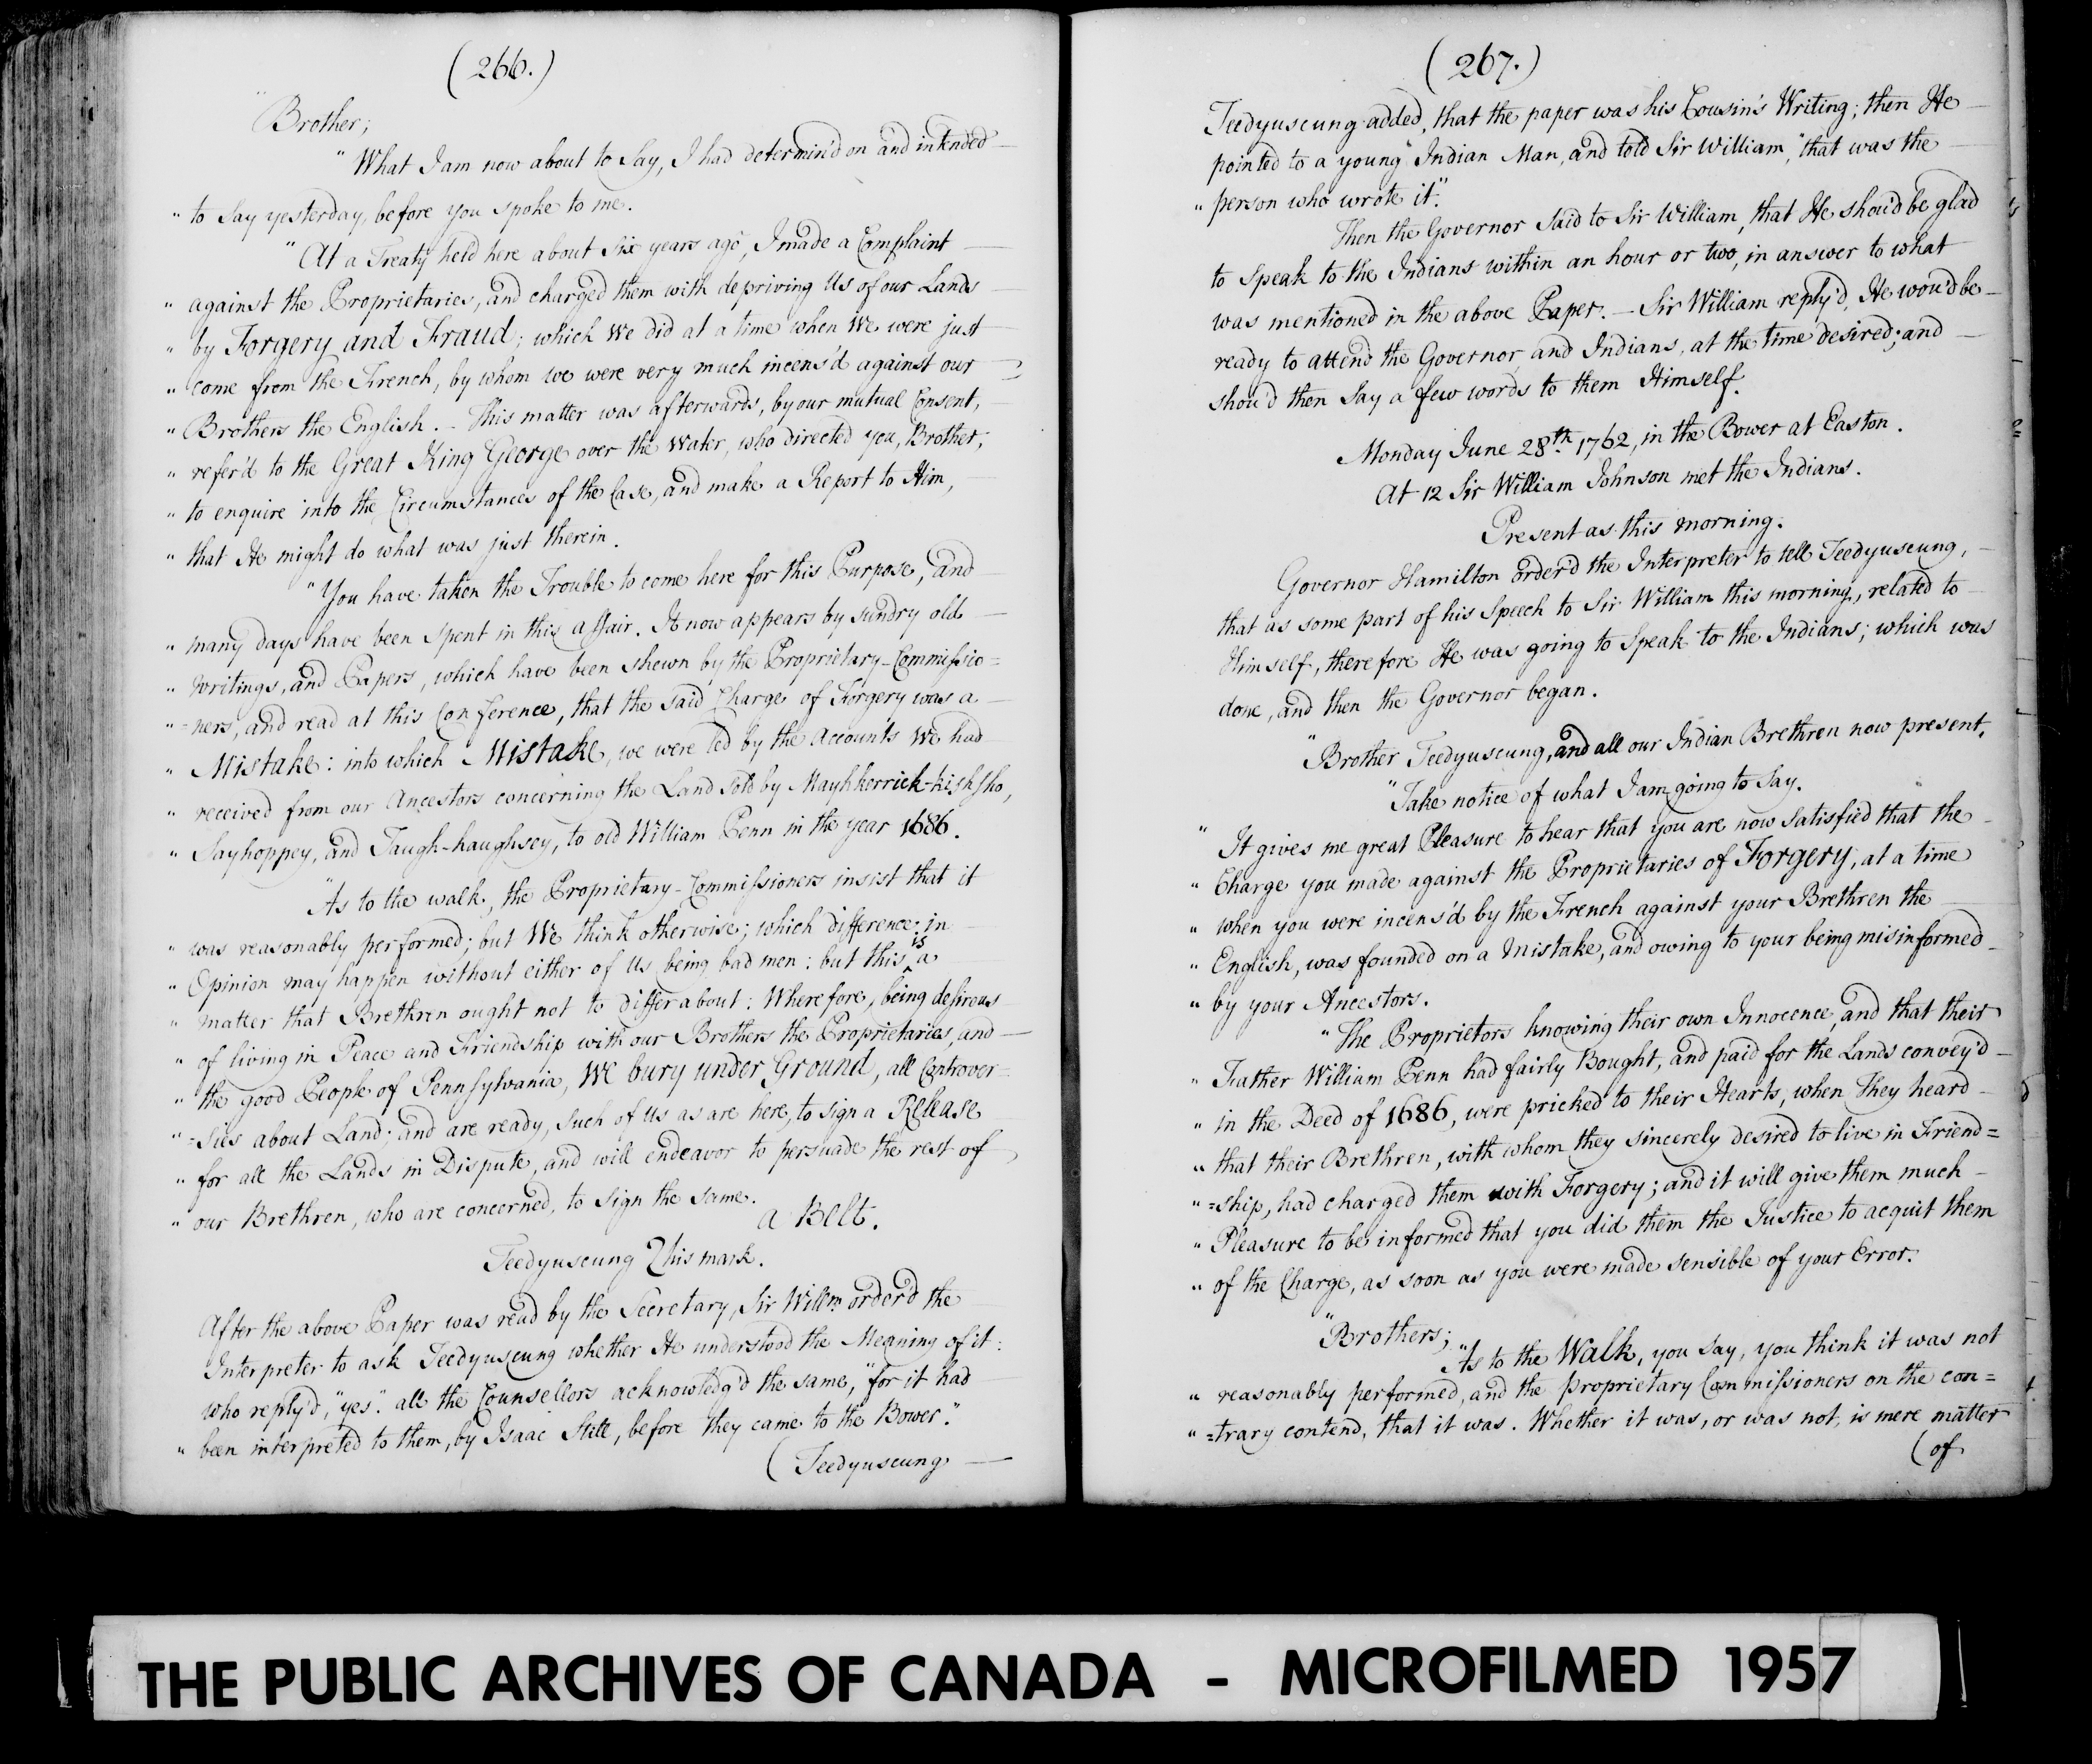 (266.)
"Brother;
"What I am now about to Say, I had determin'd on and intended
" to Say yesterday, before you spoke to me.
"At a Treaty held here about Six years ago, I made a Complaint
" against the Proprietaries, and charged them with depriving Us of our Lands
" by Forgery and Fraud; which We did at a time when We were just
" come from the French, by whom we were very much incens'd against our
" Brothers the English. – This matter was afterwards, by our mutual Consent,
" refer'd to the Great King George over the Water, who directed you, Brother,
" to enquire into the Circumstances of the Case, and make a Report to Him,
" that He might do what was just therein.
"You have taken the Trouble to come here for this Purpose, and
" many days have been spent in this affair. It now appears by sundry old
" Writings, and Papers, which have been shewn by the Proprietary-Commissio=
" =ners, and read at this Conference, that the said Charge of Forgery was a
" Mistake: into which Mistake, we were led by the Accounts We had
" received from our Ancestors concerning the Land sold by Mayhkerrick-kishsho,
" Sayhoppey, and Taugh-haughsey, to old William Penn in the year 1686.
"As to the walk, the Proprietary-Commissioners insist that it
" was reasonably performed; but We think otherwise; which difference in
" Opinion may happen without either of Us being bad men: but this is a
" matter that Brethren ought not to differ about: Wherefore, being desirous
" of living in Peace and Friendship with our Brothers the Proprietaries, and
" the good People of Pennsylvania, We bury under Ground, all Controver=
" =sies about Land; and are ready, Such of Us as are here, to sign a Release
" for all the Lands in Dispute, and will endeavor to persuade the rest of
" our Brethren, who are concerned, to sign the same.
a Belt.
Teedyuscung his mark.
After the above Paper was read by the Secretary, Sir Willm order'd the
Interpreter to ask Teedyuscung whether He understood the Meaning of it:
who reply'd, "yes". all the Counsellors acknowledg'd the same, "for it had
" been interpreted to them, by Isaac Still, before they came to the Bower."
(Teedyuscung
(267.)
Teedyuscung added, that the paper was his Cousin's Writing; then He
pointed to a young Indian Man, and told Sir William, "that was the
" person who wrote it".
Then the Governor Said to Sir William, that He shou'd be glad
to Speak to the Indians within an hour or two, in answer to what
was mentioned in the above Paper. – Sir William reply'd, He wou'd be
ready to attend the Governor, and Indians, at the time desired; and
shou'd then Say a few words to them Himself.
Monday June 28th 1762, in the Bower at Easton.
At 12 Sir William Johnson met the Indians.
Present as this morning.
Governor Hamilton order'd the Interpreter to tell Teedyuscung,
that as some part of his Speech to Sir William this morning, related to
Himself, therefore He was going to Speak to the Indians; which was
done, and then the Governor began.
"Brother Teedyuscung, and all our Indian Brethren now present,
"Take notice of what I am going to Say.
" It gives me great Pleasure to hear that you are now satisfied that the
" Charge you made against the Proprietaries of Forgery, at a time
" when you were incens'd by the French against your Brethren the
" English, was founded on a Mistake, and owing to your being misinformed
" by your Ancestors.
"The Proprietors knowing their own Innocence, and that their
" Father William Penn had fairly Bought, and paid for the Lands convey'd
" in the Deed of 1686, were pricked to their Hearts, when They heard
" that their Brethren, with whom they sincerely desired to live in Friend=
" =ship, had charged them with Forgery; and it will give them much
" Pleasure to be informed that you did them the Justice to acquit them
" of the Charge, as soon as you were made sensible of your Error.
"Brothers;
"As to the Walk, you say, you think it was not
" reasonably performed, and the Proprietary Commissioners on the con=
" =trary contend, that it was. Whether it was, or was not, is mere matter
(of
THE PUBLIC ARCHIVES OF CANADA - MICROFILMED 1957